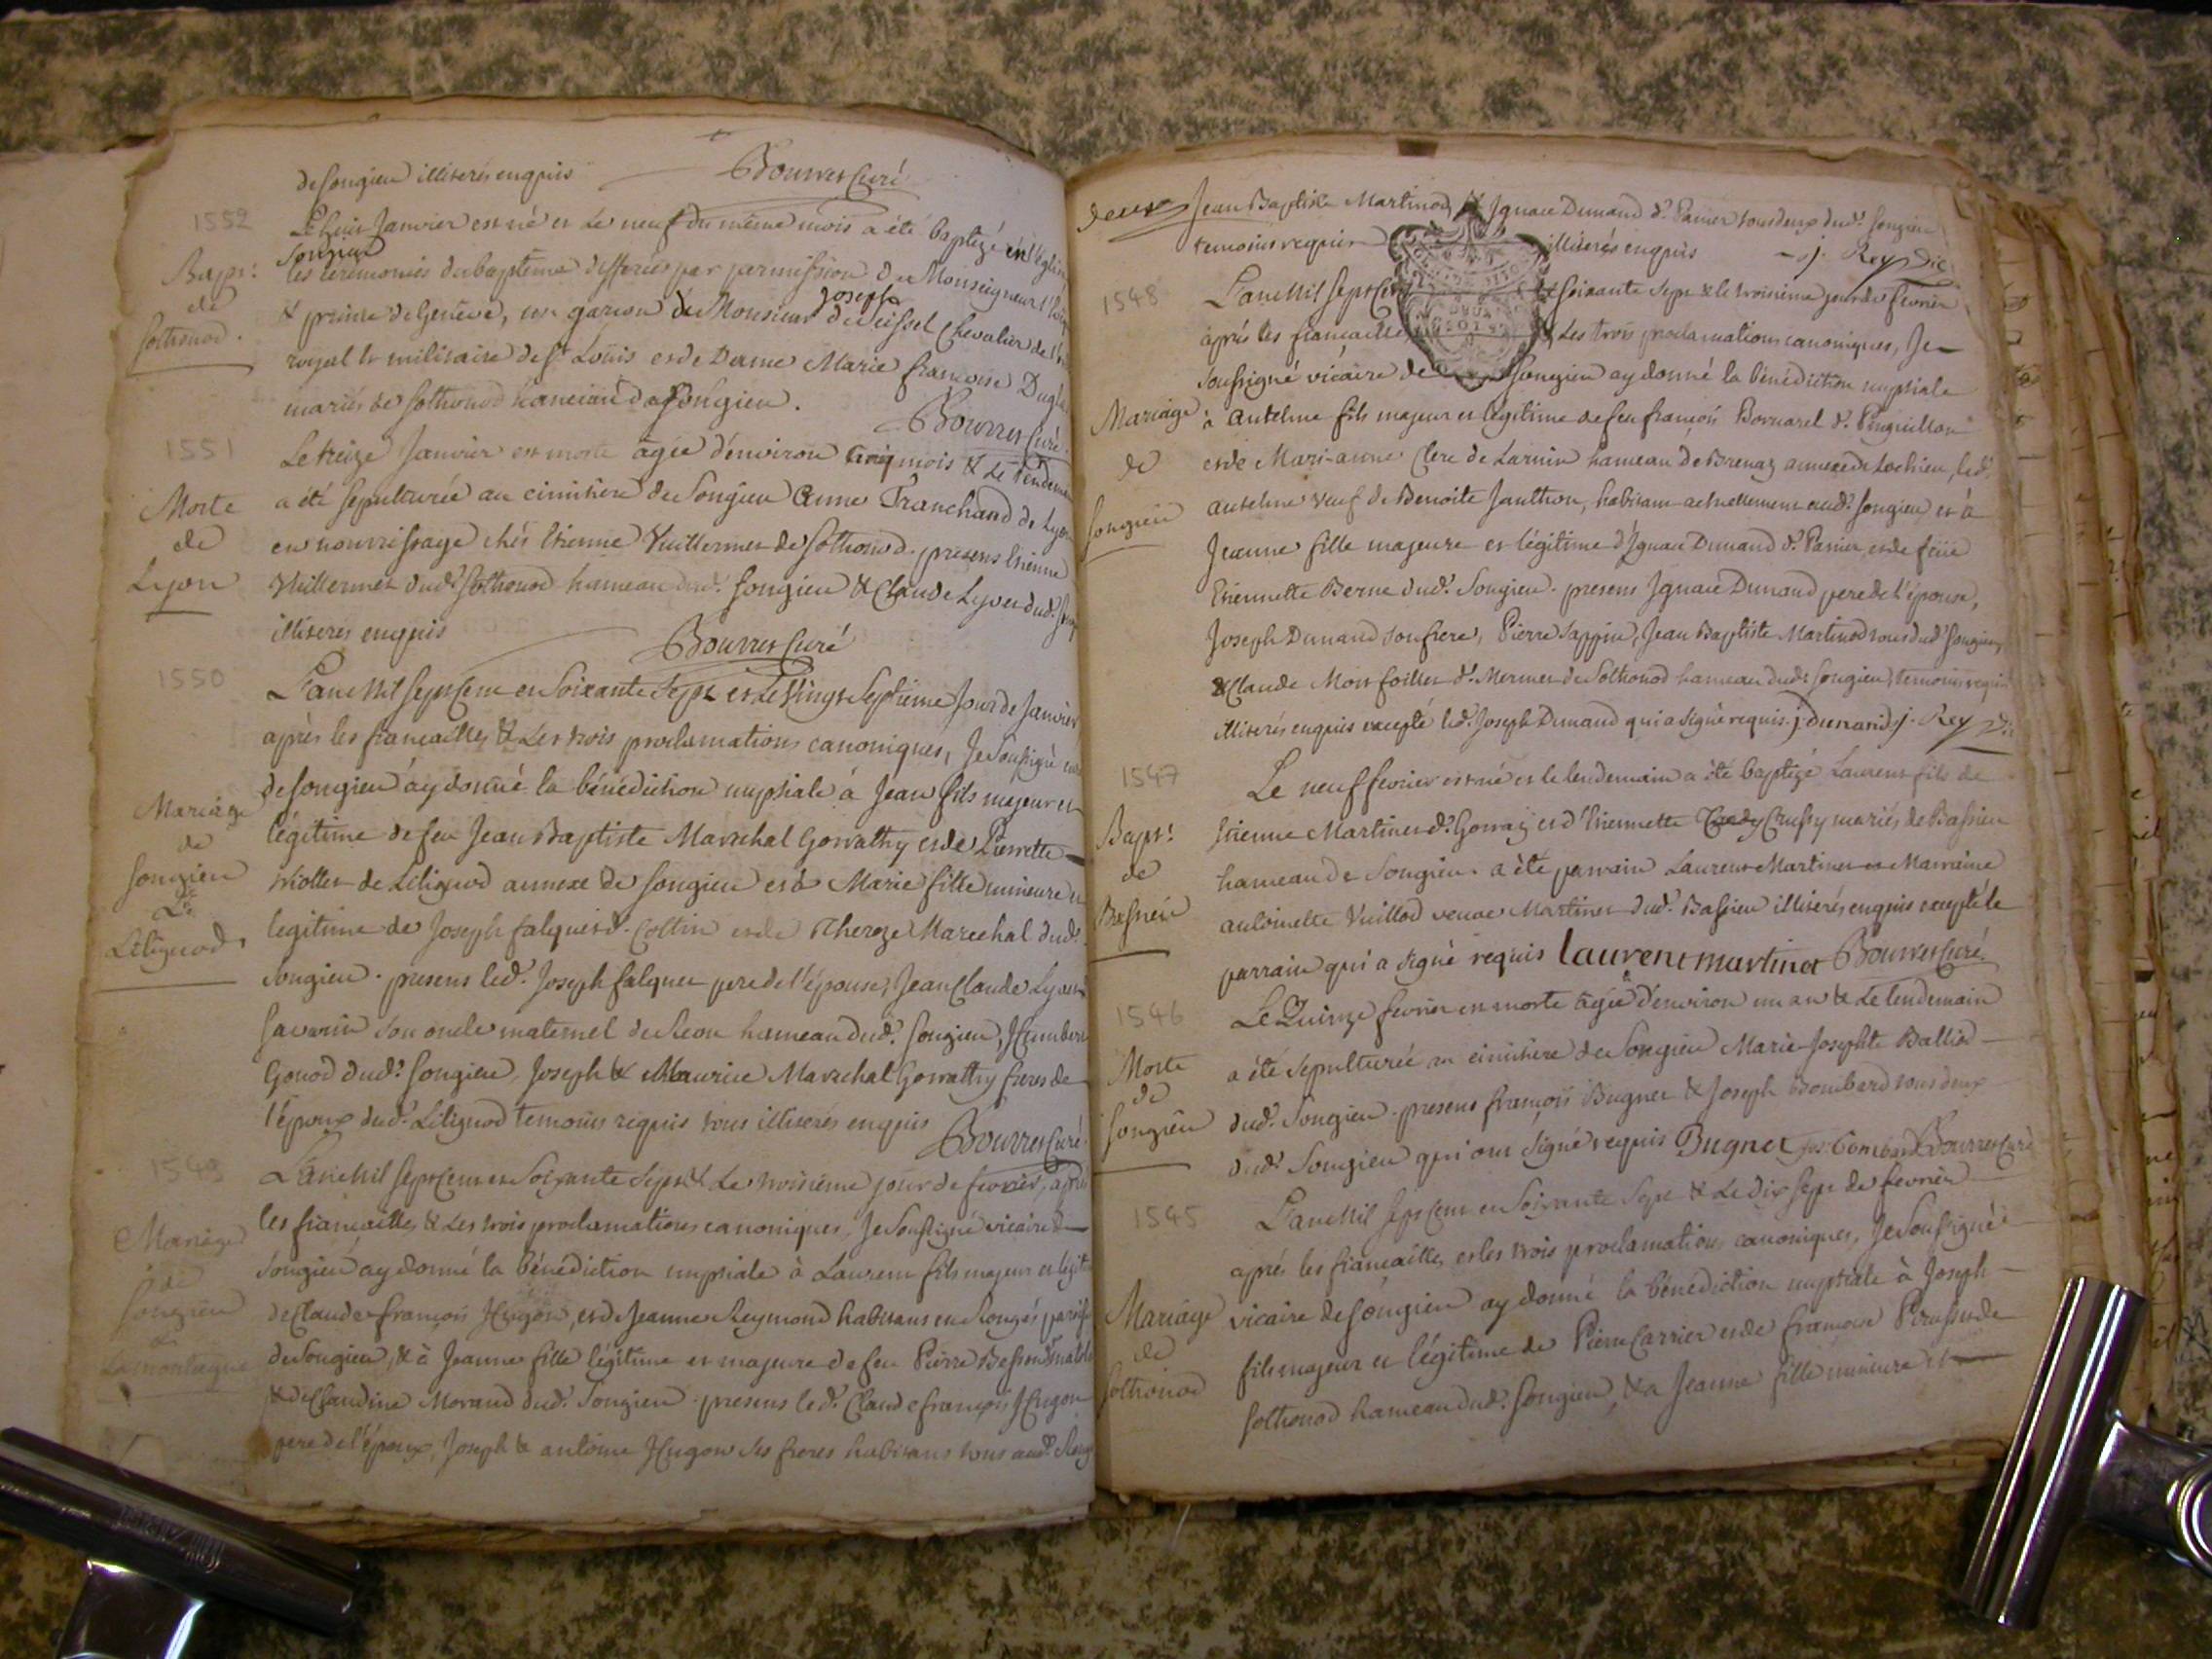 de songieu illiterés enquis Bourret Curé
1552
Le huit Janvier est né et Le neuf du même mois a été baptizé en l'Eglise
Songieu
Bapt: de Sothonod.
les ceremonies du baptême differées par permission de Monseigneur l'
& prince de Genève, un garcon de Monsieur Joseph de Seissel Chevalier de l'
royal & militaire de St Loüis et de Dame Marie francoise
mariés de Sothonod hameau de Songieu.
Bourret Curé
1551
Le treize Janvier est morte agée d'environ cinq mois & Le lendemain
Morte de Lyon
a été sepulturée au cimitiere de Songieu Anne Franchand de Lyon
en nourrissage chés Etienne Vuillermet de Sothonod. presens Etienne
Vuillermet dud.t Sothonod hameau dud.t Songieu & Claude Lyvet dud.t
illiterés enquis Bourret Curé
1550
L'an Mil Sept Cent et Soixante Sept et Le Vingt Septieme Jour de Janvier
après les fiancailles & Les trois proclamations canoniques, Je Soussigné
Mariage de Songieu & Lilignod.
de songieu ay donné la bénédiction nuptiale à Jean fils majeur et
légitime de feu Jean Baptiste Marechal Gorrathy et de Pierrette
de Lilignod annexe de songieu et à Marie fille mineure et
legitime de Joseph falquet d.t Cottin et de Thereze Marechal dud.t
Songieu. presens led.t Joseph falquet pere de l'épouse, Jean Claude Lyvet
Savarin son oncle maternel de hameau dud.t Songieu, Humbert
Gonod dud.t Songieu, Joseph & Maurice Marechal Gorrathy freres de
l'époux dud.t Lilignod temoins requis tous illiterés enquis
Bourret Curé
1549
L'an Mil Sept Cent et Soixante Sept & Le troisieme jour de fevrier, après
Mariage de Songieu & La montagne
les fiancailles & Les trois proclamations canoniques, Je Soussigné vicaire de
Songieu ay donné la bénédiction nuptiale à Laurent fils majeur et
de Claude francois Hugon, et de Jeanne Reymond habitans en
de Songieu, & à Jeanne fille légitime et majeure de feu Pierre
& de Claudine Morand dud.t Songieu. presens led.t Claude francois Hugon
pere de l'époux, Joseph & antoine Hugon ses freres habitans tous aud.t
deux Jean Baptiste Martinod & Ignace Dunand d.t Panier tous deux dud.t Songieu
temoins requis illiterés enquis j. Rey vic
1548
L'an Mil Sept Cent & Soixante Sept & le troisieme jour de fevrier
après les fiancailles & Les trois proclamations canoniques, Je
soussigné vicaire de Songieu ay donné la bénédiction nuptiale
Mariage de Songieu
à anthelme fils majeur et légitime de feu francois Bornarel d.t
et de Mari-anne Clerc de hameau de Brenaz annexe de Lochieu, led.t
anthelme veuf de Benoite Janthon, habitant actuellement aud.t Songieu et à
Jeanne fille majeure et légitime d'Ignace Dunand d.t Panier, et de feüe
Etiennette Berne dud.t Songieu. presens Ignace Dunand pere de l'épouse,
Joseph Dunand son frere, Pierre Sappin, Jean Baptiste Martinod tous dud.t Songieu,
& Claude d.t Mermet de Sothonod hameau dud.t Songieu, temoins requis
illiterés enquis excepté led.t Joseph Dunand qui a signé requis. j. dunand j. Rey
1547
Le neuf fevrier est né et le lendemain a été baptizé Laurent fils de
Bapt: de Bassieu
Etienne Martinet d.t et d'Etiennette Crussy mariés de Bassieu
hameau de Songieu. a été parrain Laurent Martinet et Marraine
antoinette Vuillod veuve Martinet dud.t Bassieu illiterés enquis excepté le
parrain qui a signé requis Laurent martinet Bourret Curé
1546
Le Quinze fevrier est morte agée d'environ un an & Le lendemain
Morte de Songieu
a été sepulturée au cimitiere de Songieu Marie Josephte Balliod
dud.t Songieu. presens francois Bugnet & Joseph Bombard tous deux
dud.t Songieu qui ont signé requis Bugnet Jos. bombard Bourret Curé
1545
L'an Mil Sept Cent et Soixante Sept & Le Dix Sept de fevrier
après les fiancailles et les trois proclamations canoniques, Je Soussigné
Mariage de Sothonod
vicaire de songieu ay donné la bénédiction nuptiale à Joseph
fils majeur et légitime de Pierre Carrier et de francoise de
Sothonod hameau dud.t Songieu, & à Jeanne fille mineure et